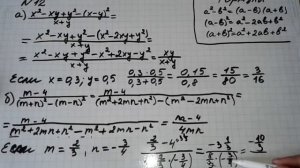 N12
a² - b² = (a-b)(a+b)
(a-b)² = a² - 2ab + b²
(a+b)² = a² + 2ab + b²
а) (x² - xy + y² - (x-y)²)/(x+y) =
= (x² - xy + y² - (x² - 2xy + y²))/(x+y) =
= (x² - xy + y² - x² + 2xy - y²)/(x+y) = xy/(x+y)
Если x = 0,3; y = 0,5 (0,3·0,5)/(0,3+0,5) = 0,15/0,8 = 15/80 = 3/16
б) (m-4)/((m+n)² - (m-n)²) = (m-4)/((m²+2mn+n²) - (m² - 2mn+n²)) =
= (m-4)/(m²+2mn+n² - m²+2mn-n²) = (m-4)/4mn
Если m = 2/3, n = -3/4